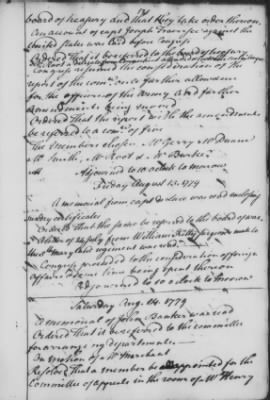 board of treasury and that they take order thereon.
An account of capt Joseph Traversie against the
United States was laid before Congress
Ordered that it be referred to the board of treasury
Congress resumed the consideration of the
report of the comee on a farther allowance
for the officers of the Army and farther
amendments being moved
Ordered that the report with the amendments
be referred to a comee of five
The members chosen Mr Gerry Mr Duane
Mr Smith, Mr Root & Mr Burke
Adjourned to 10 o'clock to morrow
Friday August 13. 1779
A memorial from capt was read enclosing
sundry certificates
Ordered that the same be referred to the board of war
A letter of 24 July from William
third Maryland regiment was read
Congress proceeded to the consideration of foreign
Affairs & some time being spent thereon
Adjourned to 10 o clock to Morrow
Saturday Aug. 14 1779
A memorial of John Banker was read
Ordered that it be referred to the committee
for arranging departments
On motion of Mr Marchant
Resolved that a member be appointed for the
Committee of appeals in the room of Mr Henry